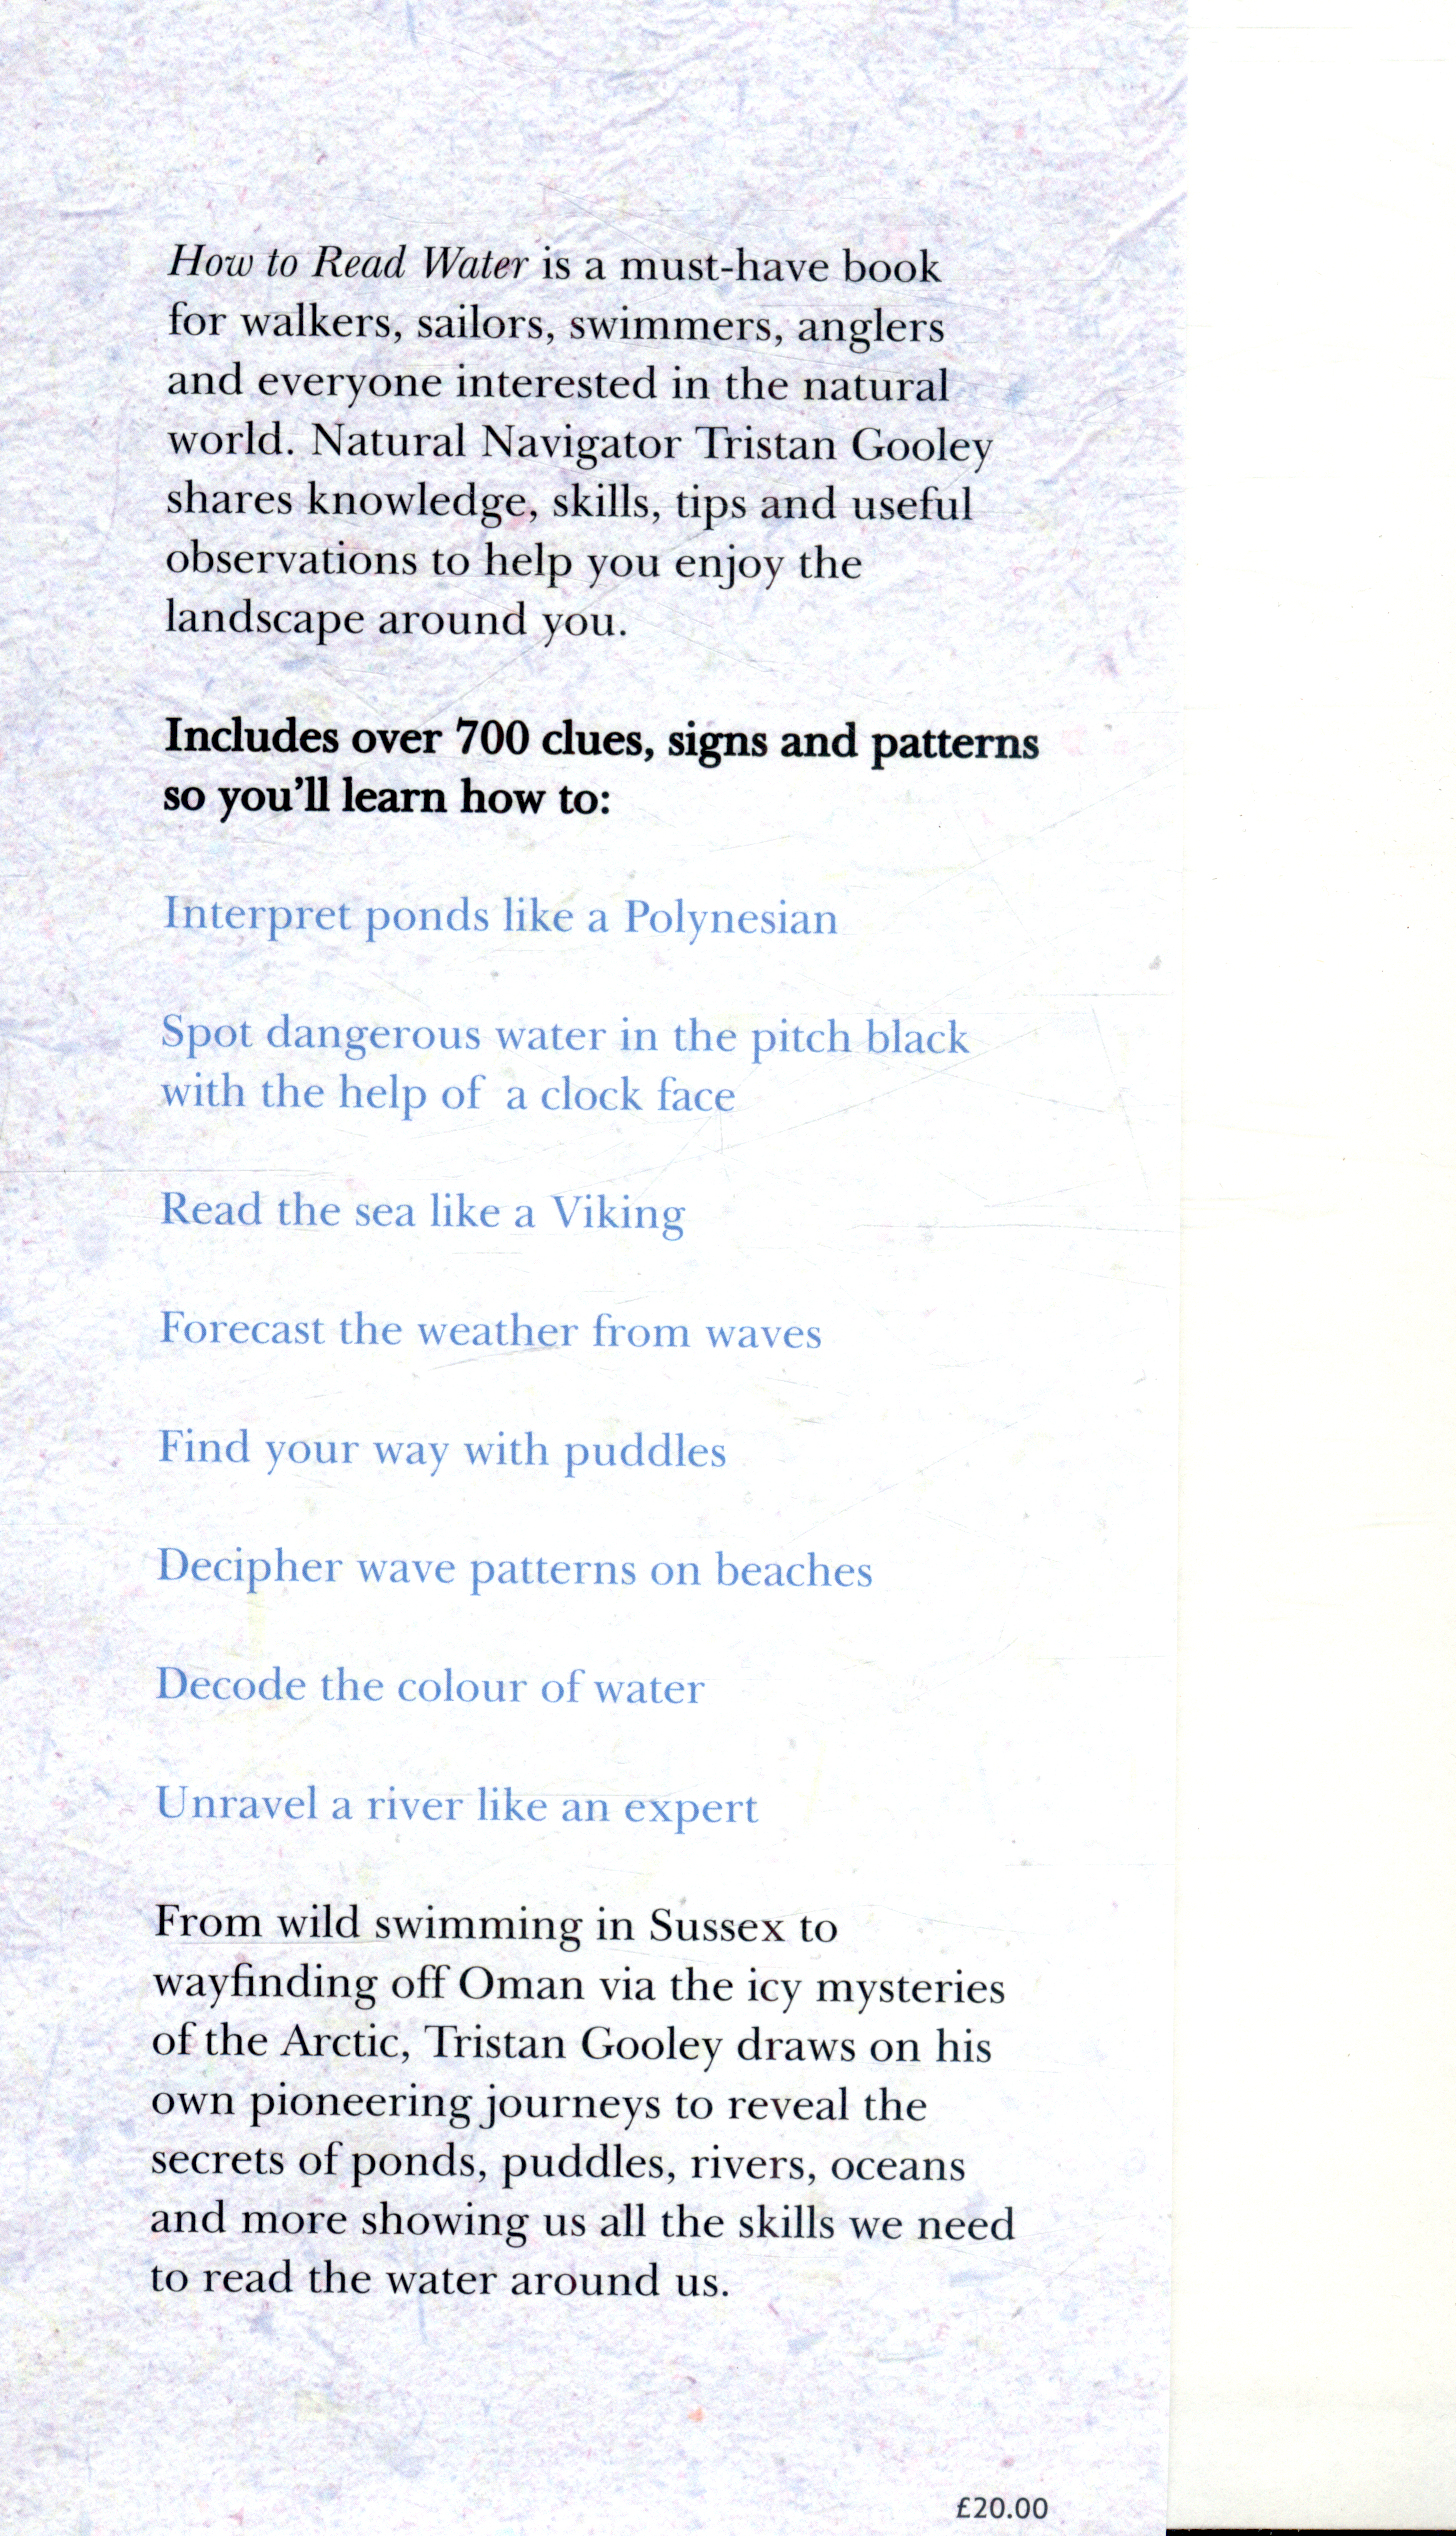 How to Read Water is a must-have book
for walkers, sailors, swimmers, anglers
and everyone interested in the natural
world. Natural Navigator Tristan Gooley
shares knowledge, skills, tips and useful
observations to help you enjoy the
landscape around you.
Includes over 700 clues, signs and patterns
so you’ll learn how to:
Interpret ponds like a Polynesian
Spot dangerous water in the pitch black
with the help of a clock face
Read the sea like a Viking
Forecast the weather from waves
Find your way with puddles
Decipher wave patterns on beaches
Decode the colour of water
Unravel a river like an expert
From wild swimming in Sussex to
wayfinding off Oman via the icy mysteries
of the Arctic, Tristan Gooley draws on his
own pioneering journeys to reveal the
secrets of ponds, puddles, rivers, oceans
and more showing us all the skills we need
to read the water around us.
£20.00